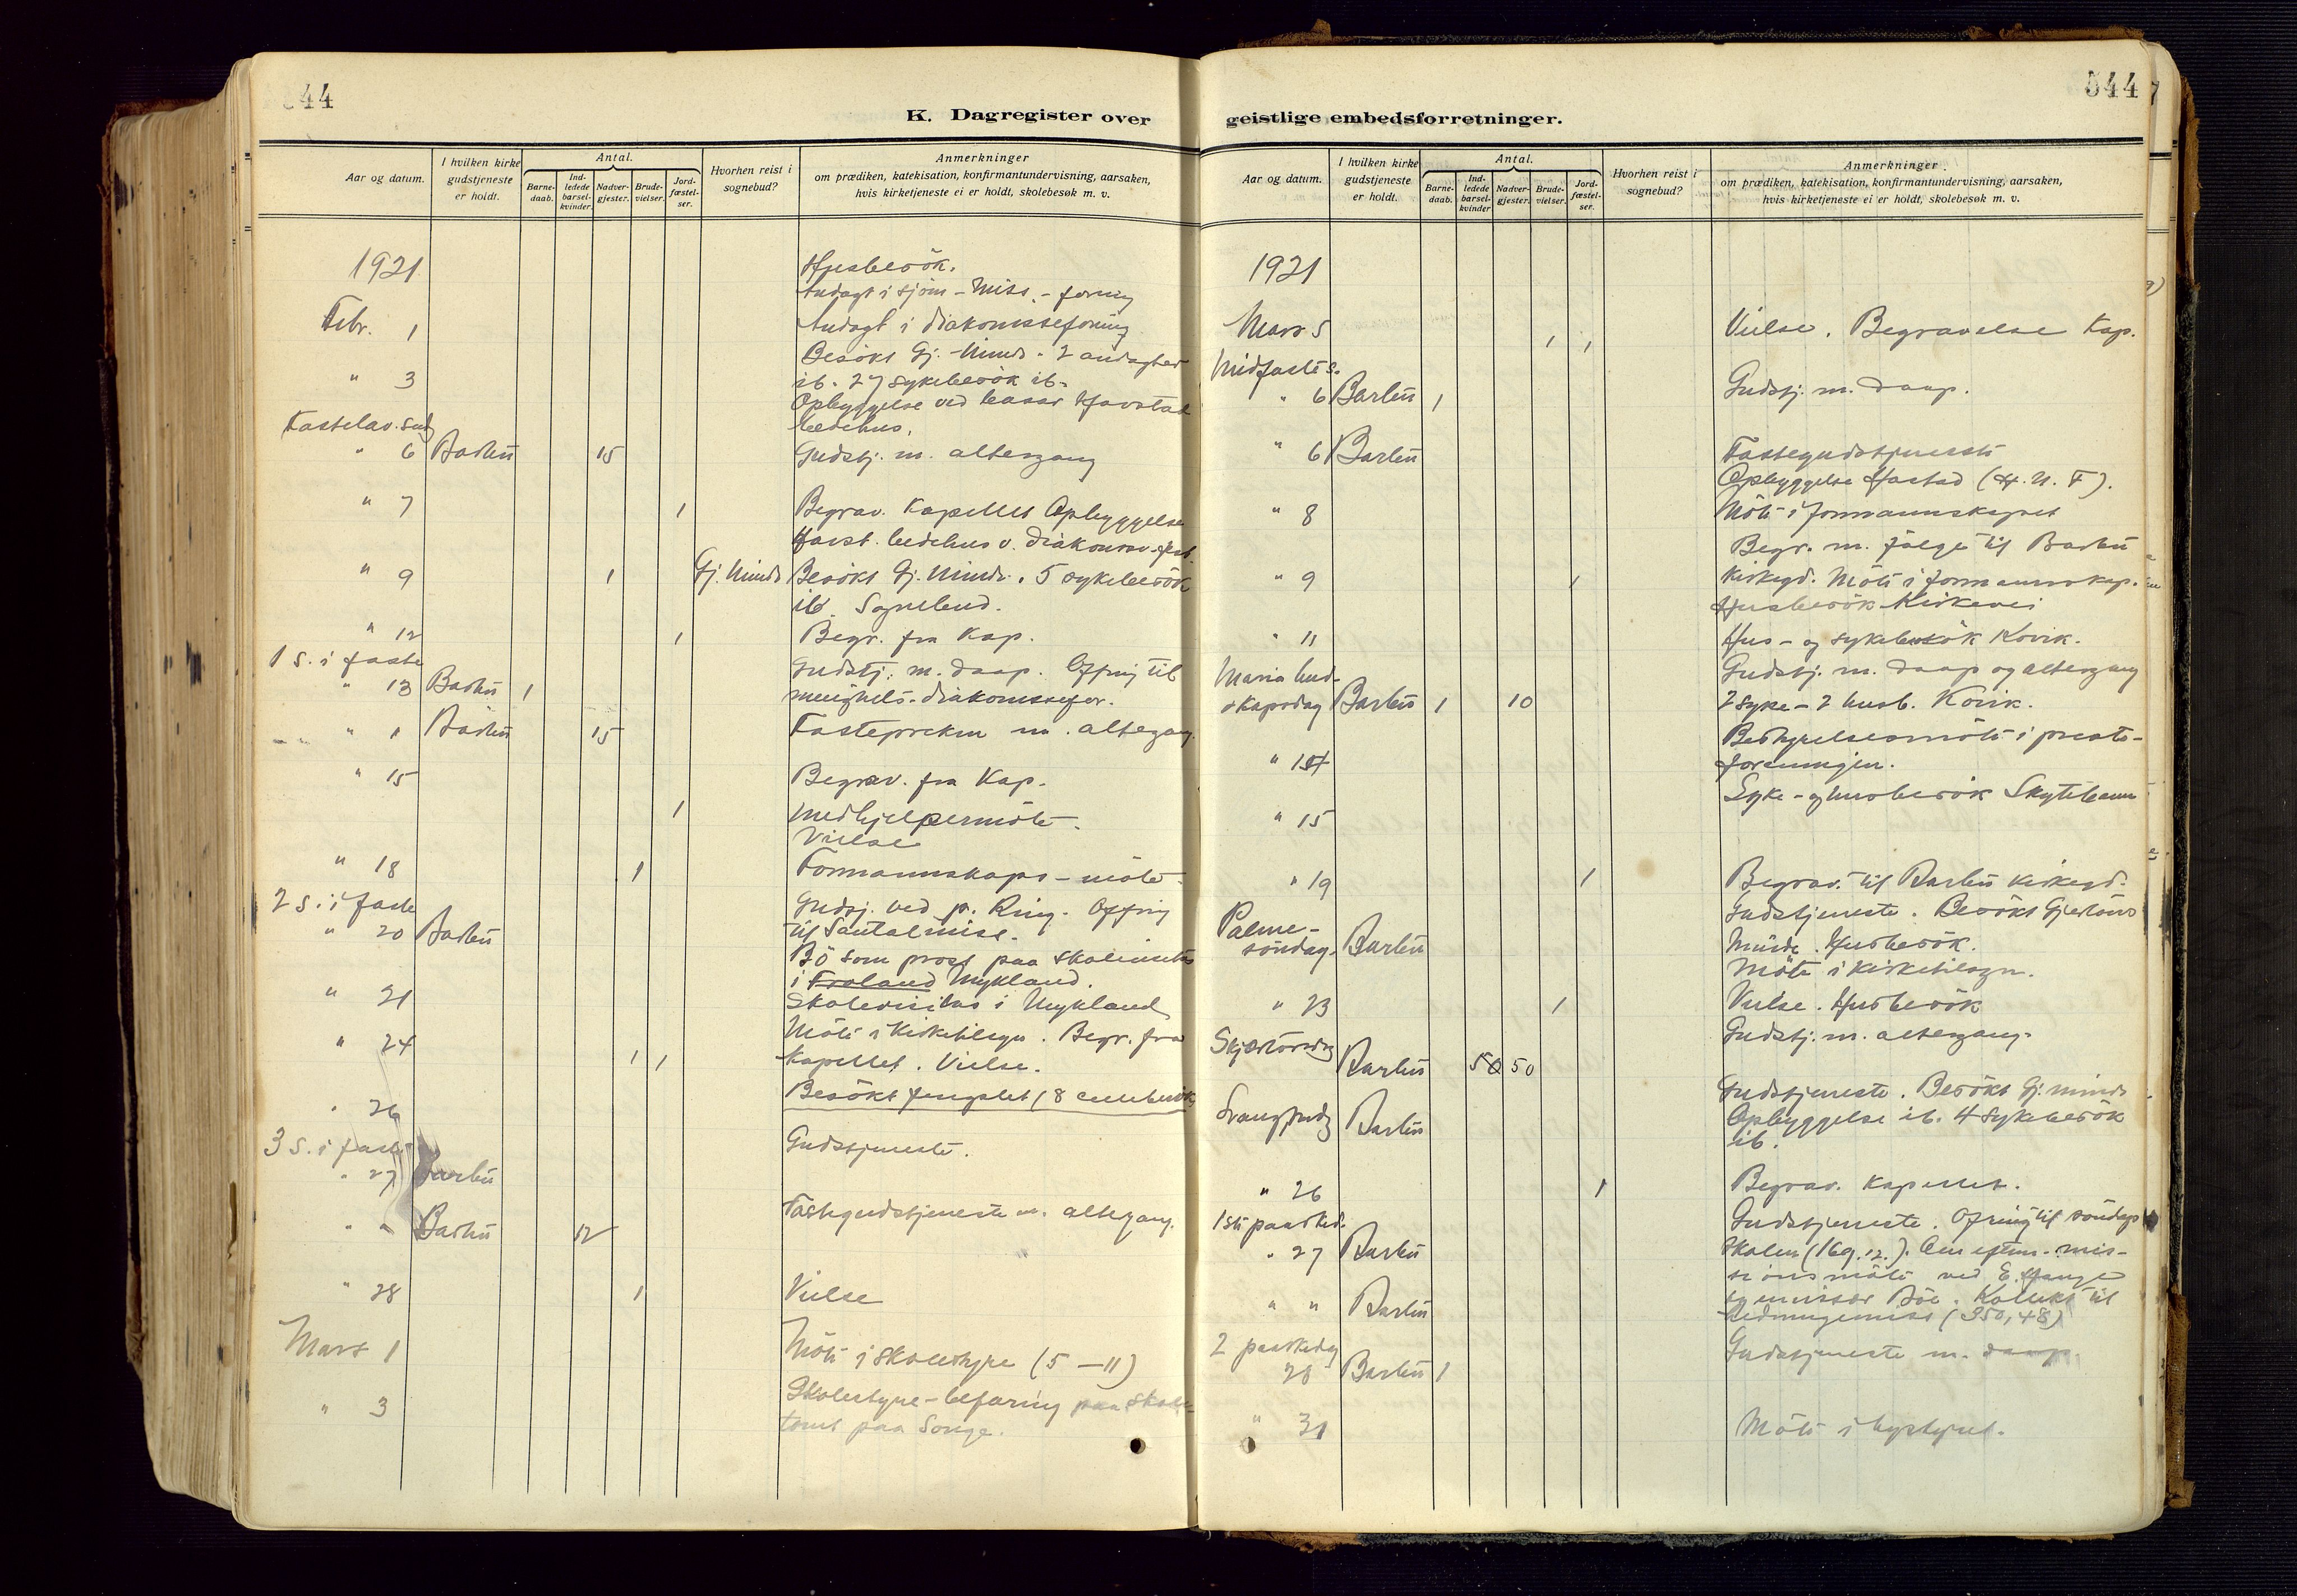 544
K. Dagregister over
Aar og datum.
I hvilken kirke gudstjeneste er holdt.
Antal.
Barne-daab.
Ind-ledede barsel-kvinder.
Nadver-gjester.
Brude-vielser.
Jord-fæstel-ser.
Hvorhen reist i sognebud?
Anmerkninger
om prædiken, katekisation, konfirmantundervisning, aarsaken,
hvis kirketjeneste ei er holdt, skolebesøk m. v.
1921
Husbesök.
Andagt i sjöm-Miss.-foring
Febr. 1 Andagt i diakonisseforing
Besökt Gj.-Minde. 2 andagter
" 3 ib. 27 sykebesök ib.
Opbyggelse ved basar Havstad
bedehus.
Fastelav. sndg
" 6 Barbu 15 Gudstj. m. altergang
" 7 1 Begrav. Kapellet Opbyggelse
Havst. bedehus v.
" 9 1 Gj. Minde Besökt Gj. Minde. 5 sykebesök
ib. Sognebud.
" 12 1 Begr. fra Kap.
1 S. i faste
" 13 Barbu 1 Gudstj. m. daap. Offring til
menighets-diakonissefor.
" " Barbu 15 Fasteprekn m. altergang.
" 15 1 Begrav. fra Kap.
Medhjelpermöte.
Vielse
" 18 1 Formannskaps-möte.
2 S. i faste
" 20 Barbu Gudsj. ved p. Ring. Offring
til Santalmiss.
Bö som prost paa skolevisitas
i Froland Mykland.
" 21 Skolevisitas i Mykland
" 24 1 1 Möte i Kirketilsyn. Begr. fra
Kapellet. Vielse.
" 26 Besökt fengslet (8 cellebesök)
3 S. i faste
" 27 Barbu Gudstjeneste.
" " Barbu 12 Fastegudstjeneste m. altergang.
" 28 1 Vielse
Mars 1 Möte i skolestyre (5-11)
" 3 Skolestyre-befaring paa skole-
tomt paa Songe.
544
geistlige embedsforretninger.
Aar og datum.
I hvilken kirke gudstjeneste er holdt.
Antal.
Barne-daab.
Ind-ledede barsel-kvinder
Nadver-gjester.
Brude-vielser.
Jord-fæstel-ser.
Hvorhen reist i sognebud?
Anmerkninger.
om prædiken, katekisation, konfirmantundervisning, aarsaken,
hvis kirketjeneste ei er holdt, skolebesøk m. v.
1921
Mars 5 1 1 Vielse. Begravelse Kap.
Midfaste s.
" 6 Barbu 1 Gudstj. m. daap.
" 6 Barbu Fastegudstjeneste
Opbyggelse Hastad (H. U. F).
" 8 Möte i formannskapet
Begr. m. fölge til Barbu
" 9 1 kirkegd. Möte i formannskap.
Husbesök Kirkevei
" 11 Hus- og sykebesök Kovik.
Maria bud- Gudstj. m. daap og altergang
skapsdag Barbu 1 10 2 syke- 2 husb. Kovik.
Bestyrelsesmöte i preste-
" 14 foreningen.
Syke- og husbesök Skytebanen
" 15
" 19 1 Begrav. til Barbu kirkegd.
Palme- Gudstjeneste. Besökt Gjestens
söndag. Barbu Minde. Husbesök.
Möte i kirketilsyn.
" 23 1 Vielse. Husbesök
Skjærtorsdag Barbu 50 50 Gudstj. m. altergang.
Langfredg Barbu Gudstjeneste. Besökt Gj. minde
Opbyggelse ib. 4 sykebesök
ib.
" 26 1 Begrav. Kapellet.
1ste paasked. Gudstjeneste. Ofring til söndags
" 27 Barbu skolen (169.12.). Om efterm. mis-
sionsmöte ved E. Hauge
" " Barbu Kollekt til
(350,48)
2 paaskedg Gudstjeneste m. daap.
28 Barbu 1
" 31 Möte i bystyret.